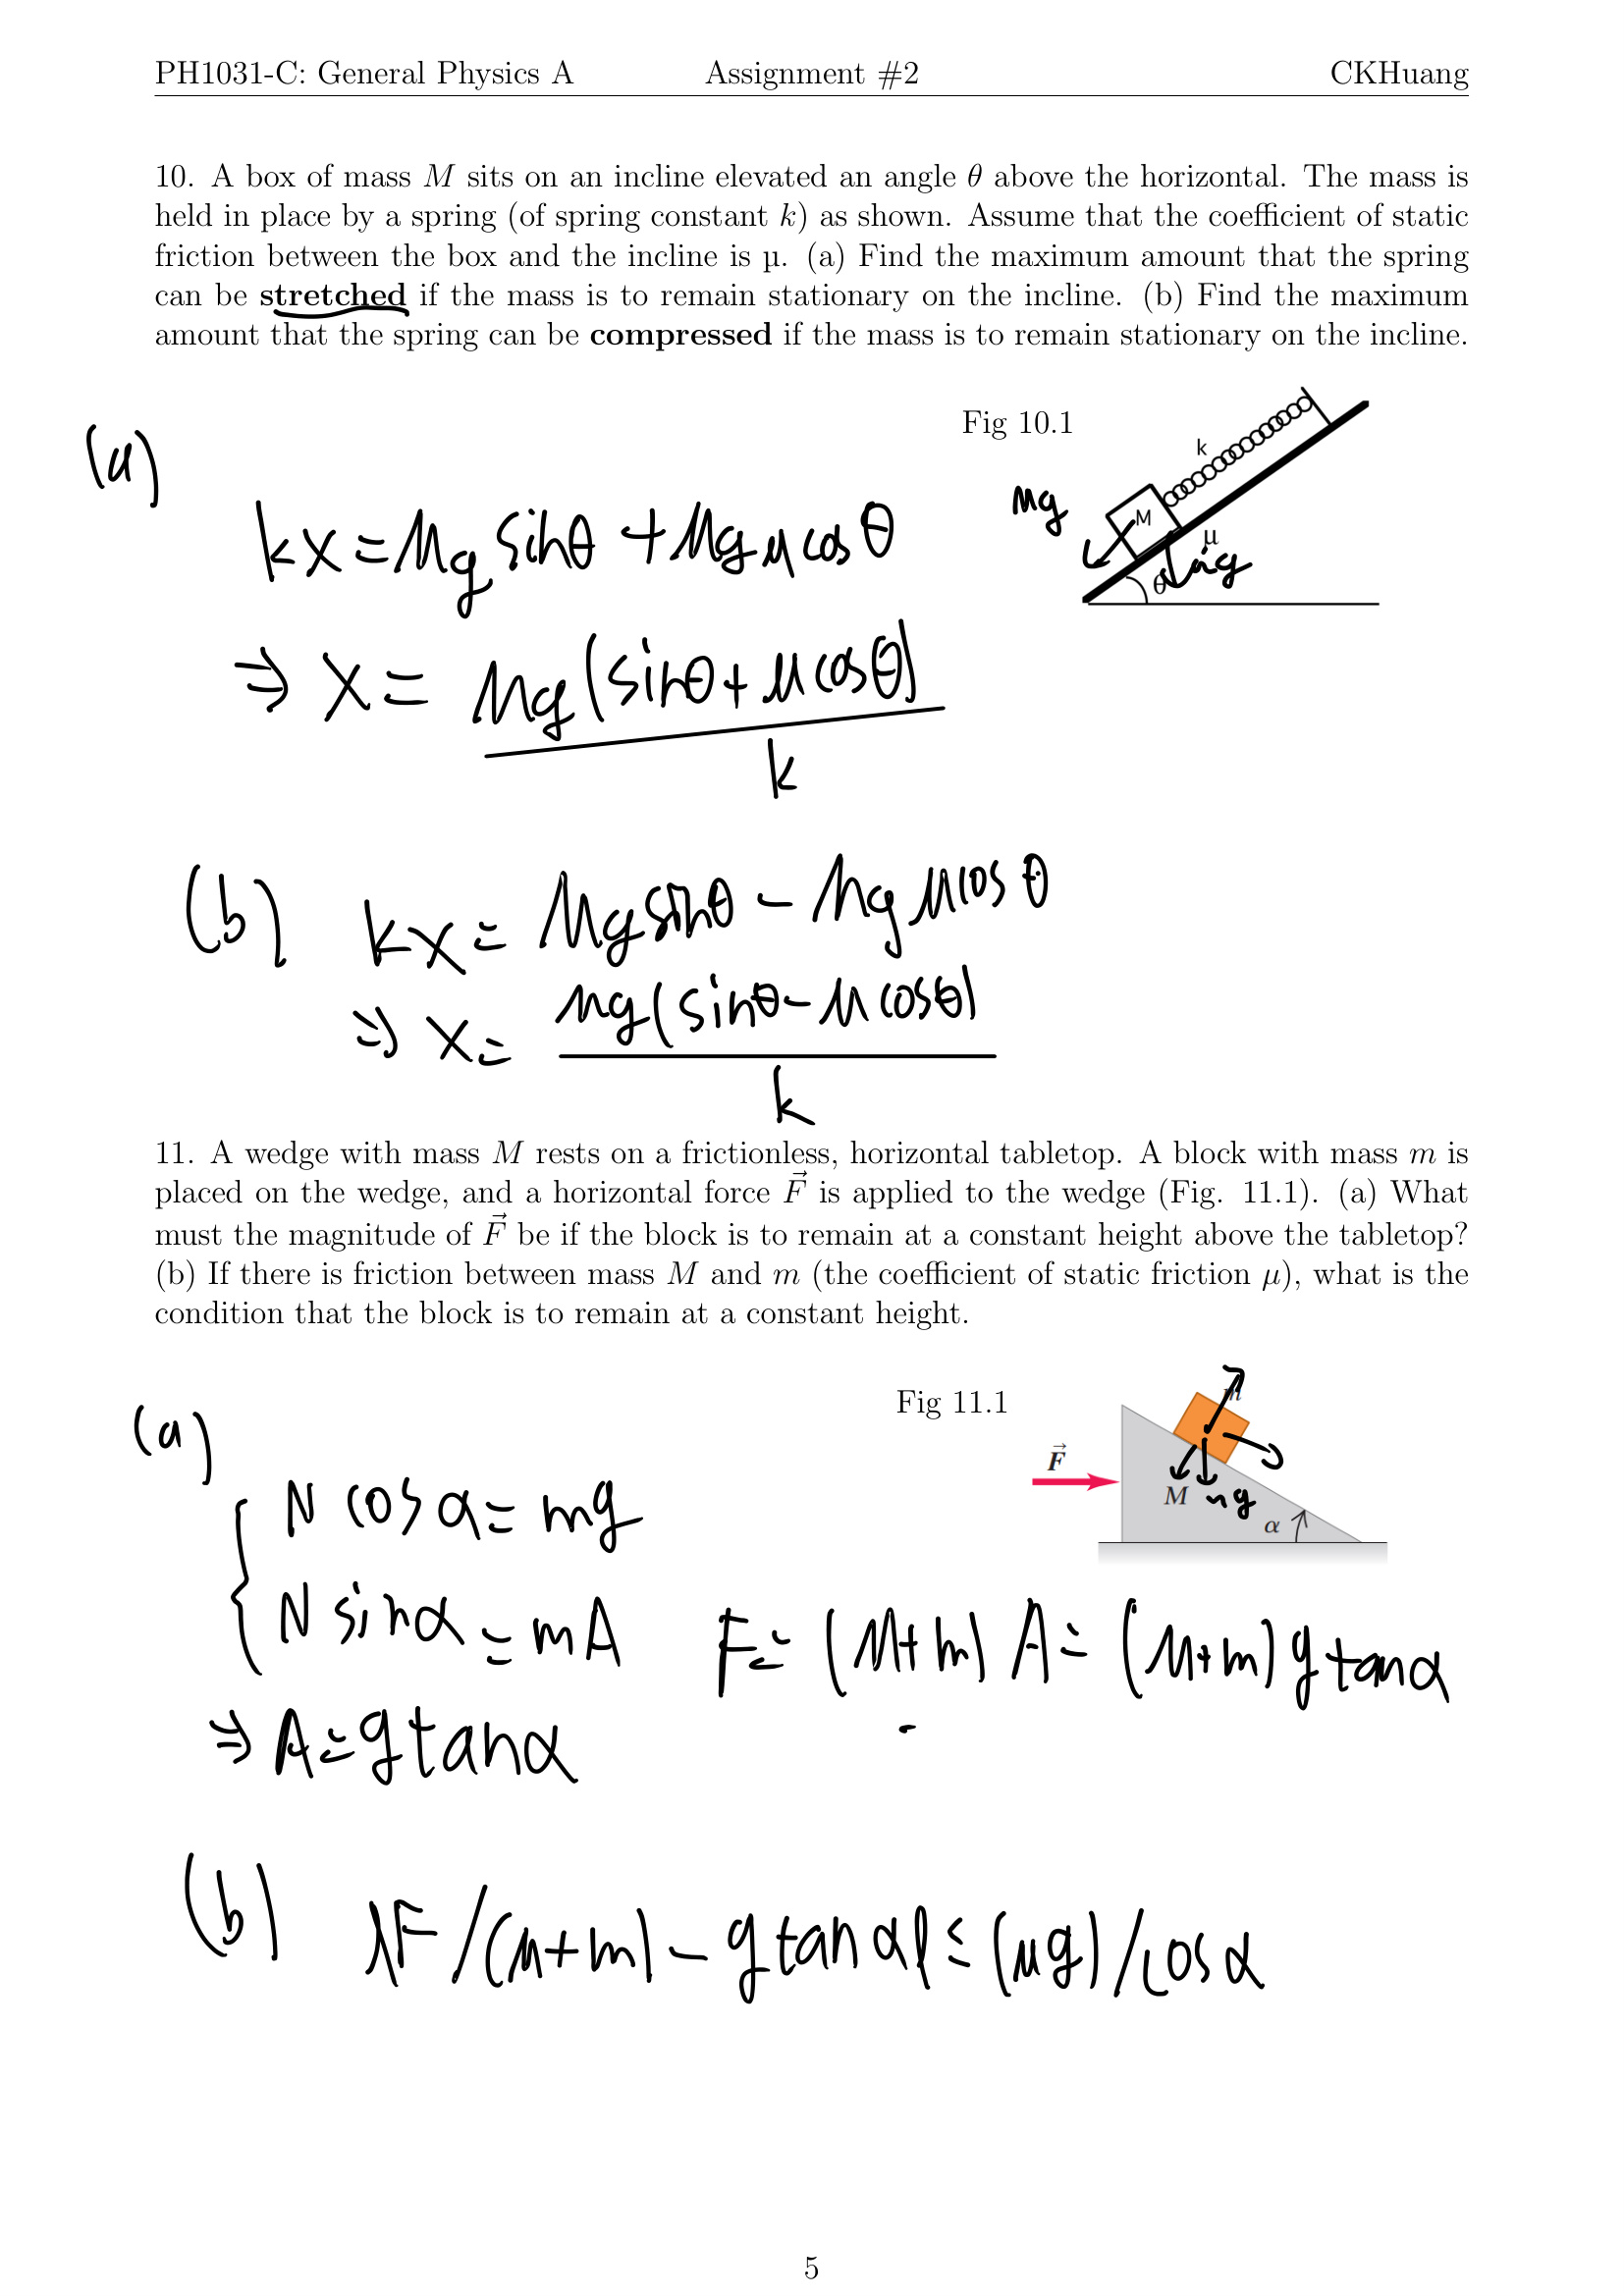 PH1031-C: General Physics A Assignment #2 CKHuang
10. A box of mass M sits on an incline elevated an angle θ above the horizontal. The mass is
held in place by a spring (of spring constant k) as shown. Assume that the coefficient of static
friction between the box and the incline is µ. (a) Find the maximum amount that the spring
can be stretched if the mass is to remain stationary on the incline. (b) Find the maximum
amount that the spring can be compressed if the mass is to remain stationary on the incline.
Fig 10.1
k
M
µ
θ
Mg
mg
(a)
kx = Mg sinθ + Mg μ cosθ
⇒ x = Mg(sinθ + μ cosθ) / k
(b) kx = Mg sinθ - Mg μ cosθ
⇒ x = Mg(sinθ - μ cosθ) / k
11. A wedge with mass M rests on a frictionless, horizontal tabletop. A block with mass m is
placed on the wedge, and a horizontal force F⃗ is applied to the wedge (Fig. 11.1). (a) What
must the magnitude of F⃗ be if the block is to remain at a constant height above the tabletop?
(b) If there is friction between mass M and m (the coefficient of static friction μ), what is the
condition that the block is to remain at a constant height.
Fig 11.1
m
F⃗
M
mg
α
(a)
N cosα = mg
N sinα = mA
F = (M+m) A = (M+m) g tanα
⇒ A = g tanα
(b) |F/(M+m) - g tanα| ≤ (μg)/cosα
5